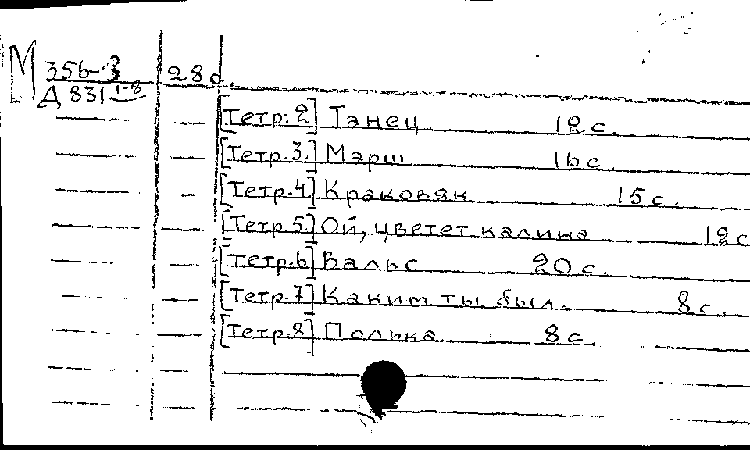 М 356-3 28 с.
Д 831 1-8
[Тетр. 2] Танец 12 с.
[Тетр. 3.] Марш 16 с.
[Тетр. 4] Краковяк 15 с.
[Тетр. 5.] Ой, цветет калина 12 с
[Тетр. 6] Вальс 20 с.
[Тетр. 7] Каким ты был. 8 с.
[Тетр. 8] Полька 8 с.